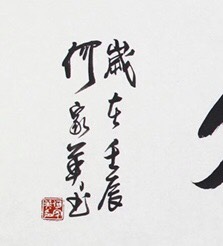 歲在壬辰
何家英书